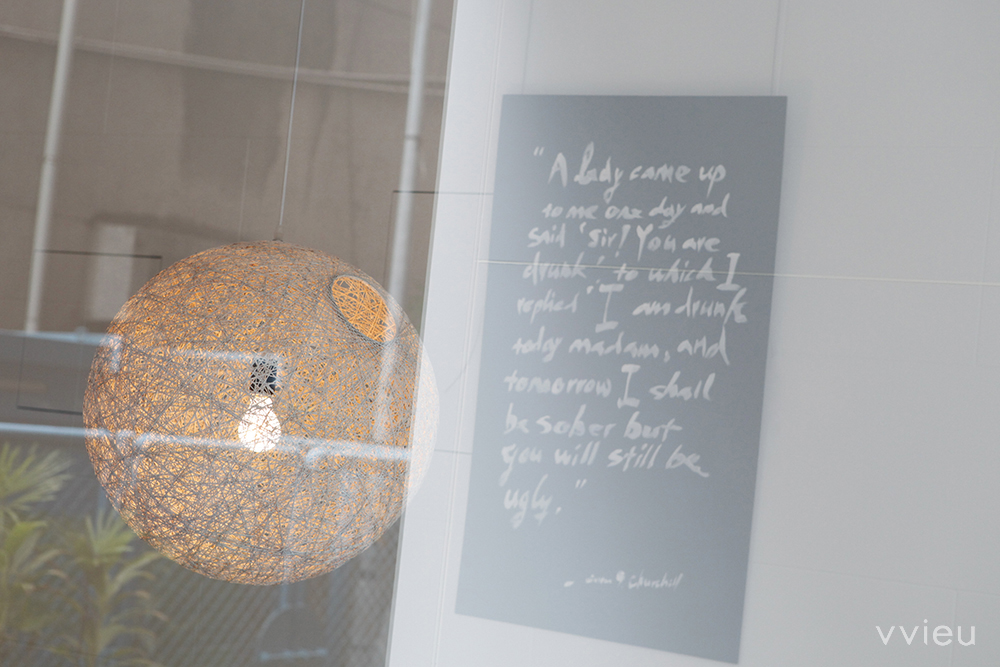 "A lady came up
to me one day and
said 'Sir! You are
drunk', to which I
replied 'I am drunk
today madam, and
tomorrow I shall
be sober but
you will still be
ugly."
Churchill
vvieu